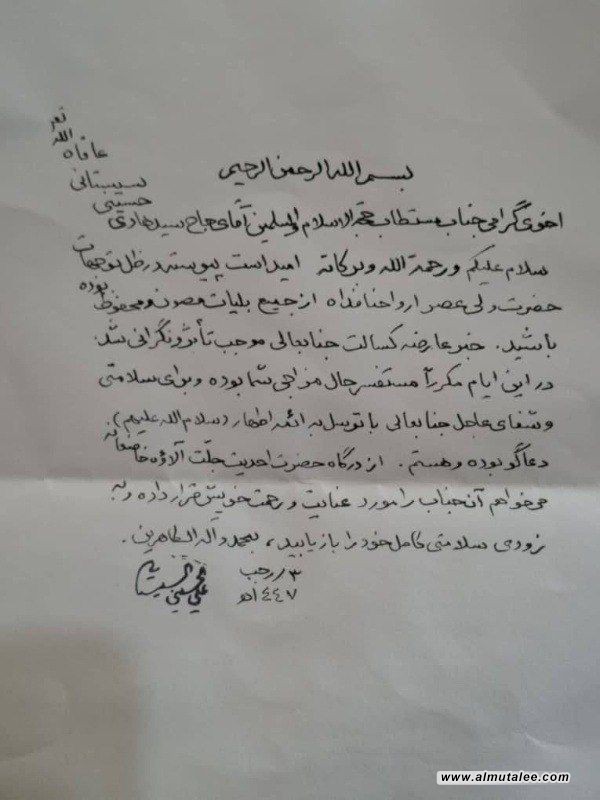 بسم الله الرحمن الرحیم
اخوی گرامی جناب مستطاب حجة الاسلام والمسلمین آقای حاج سید هادی حسینی سیستانی عافاه الله
سلام علیکم ورحمة الله وبرکاته امید است پیوسته در ظل توجهات
حضرت ولی عصر ارواحنا فداه از جمیع بلیات مصون و محفوظ بوده
باشید. خبر عارضه کسالت جنابعالی موجب تأثر و نگرانی شد.
در این ایام مکرراً مستفسر حال مزاجی شما بوده و برای سلامتی
و شفای عاجل جنابعالی با توسل به ائمه اطهار (سلام الله علیهم)
دعاگو بوده و هستم. از درگاه حضرت احدیت جلّت آلاؤه خاضعانه
می‌خواهم آن جناب را مورد عنایت و رحمت خویش قرار داده و به
زودی سلامتی کامل خود را بازیابید، بمحمد وآله الطاهرین.
٣/رجب
١٤٤٧هـ
علي الحسيني السيستاني
www.almutalee.com